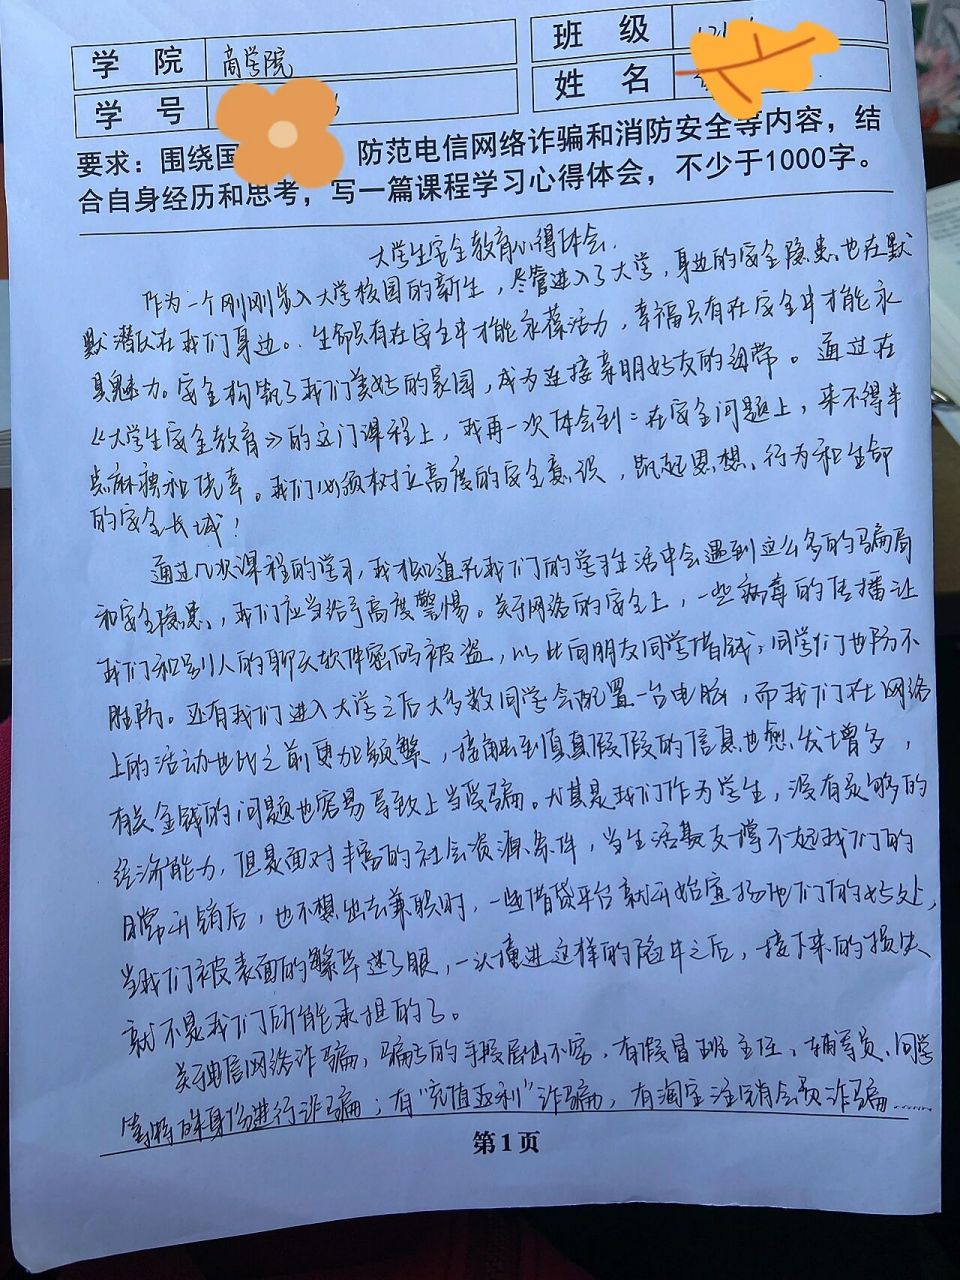 学 院 商学院
班 级
学 号
姓 名
要求：围绕国 防范电信网络诈骗和消防安全等内容，结
合自身经历和思考，写一篇课程学习心得体会，不少于1000字。
大学生安全教育心得体会.
作为一个刚刚步入大学校园的新生，尽管进入了大学，身边的安全隐患也在默
默潜伏在我们身边。.生命只有在安全中才能永葆活力，幸福只有在安全中才能永
具魅力。安全构筑了我们美好的家园，成为连接亲朋好友的纽带。通过在
《大学生安全教育》的这门课程上，我再一次体会到：在安全问题上，来不得半
点麻痹和侥幸。我们必须树立高度的安全意识，筑起思想、行为和生命
的安全长城！
通过几次课程的学习，我才知道在我们的学习生活中会遇到这么多的骗局
和安全隐患，我们应当给予高度警惕。关于网络的安全上，一些病毒的传播让
我们和别人的聊天软件密码被盗，以此向朋友同学借钱，同学们也防不
胜防。还有我们进入大学之后大多数同学会配置一台电脑，而我们在网络
上的活动也比之前更加频繁，接触到真真假假的信息也愈发增多，
有关金钱的问题也容易导致上当受骗。尤其是我们作为学生，没有足够的
经济能力，但是面对丰富的社会资源条件，当生活费支撑不起我们的
日常开销后，也不想出去兼职时，一些借贷平台就开始宣扬他们的好处，
当我们被表面的繁华迷了眼，一头撞进这样的陷井之后，接下来的损失
就不是我们所能承担的了。
关于电信网络诈骗，骗子的手段层出不穷，有假冒班主任、辅导员、同学
等特殊身份进行诈骗；有“充值返利”诈骗，有淘宝注销会员诈骗……
第1页